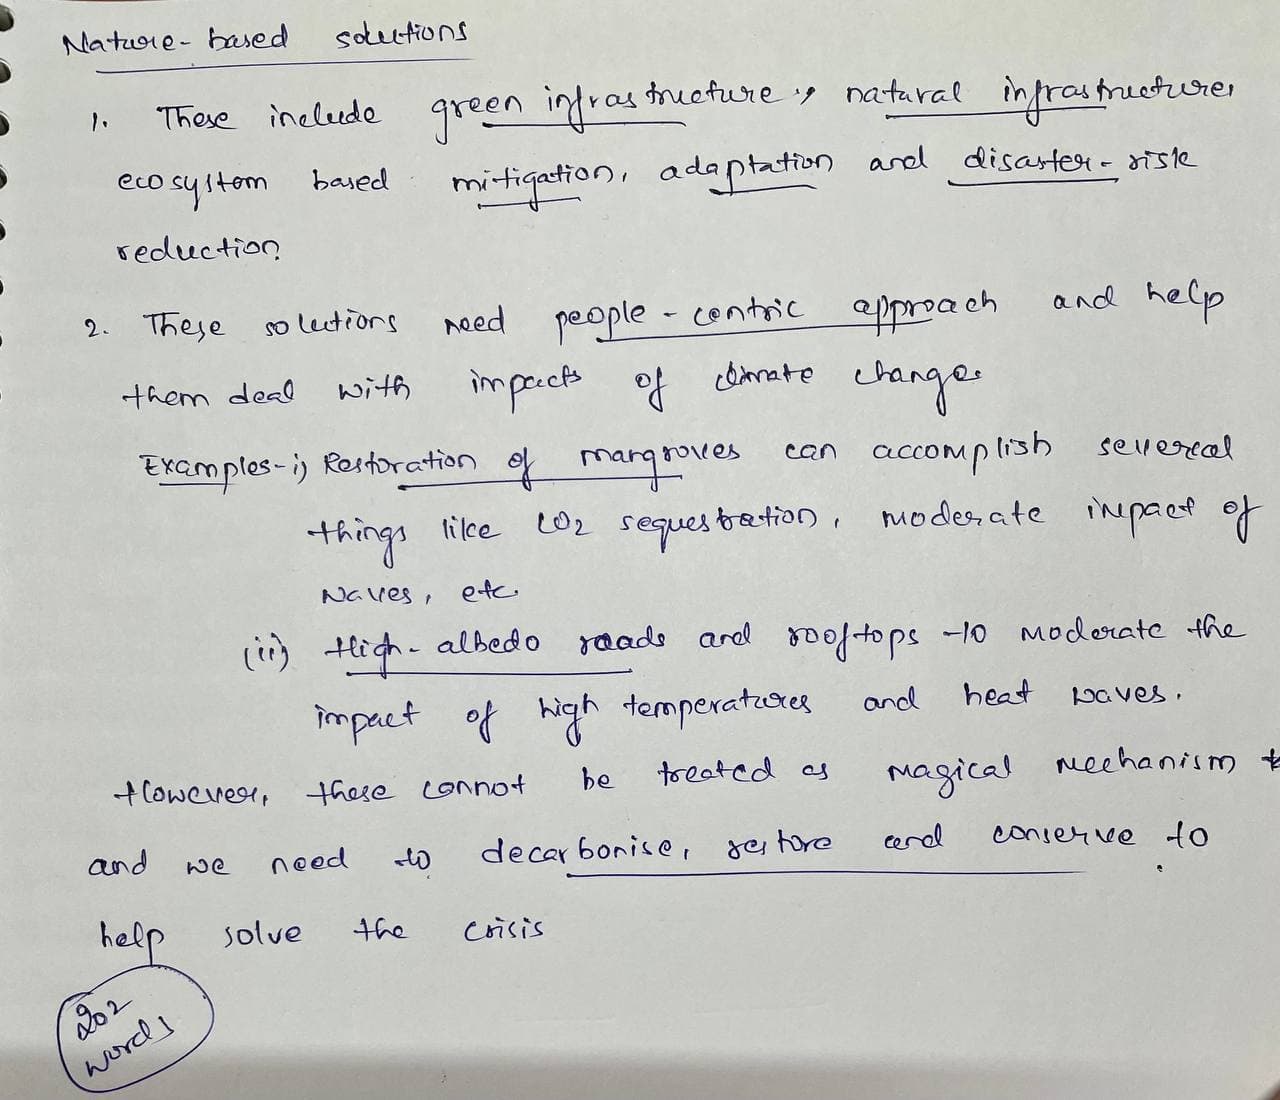 Nature-based solutions
1. These include green infrastructure, natural infrastructure,
ecosystem based mitigation, adaptation and disaster-risk
reduction.
2. These solutions need people-centric approach and help
them deal with impacts of climate change.
Examples- i) Restoration of mangroves can accomplish several
things like CO2 sequestration, moderate impact of
waves, etc.
(ii) High-albedo roads and rooftops - to moderate the
impact of high temperatures and heat waves.
However, these cannot be treated as magical mechanism
and we need to decarbonise, restore and conserve to
help solve the crisis
202
words